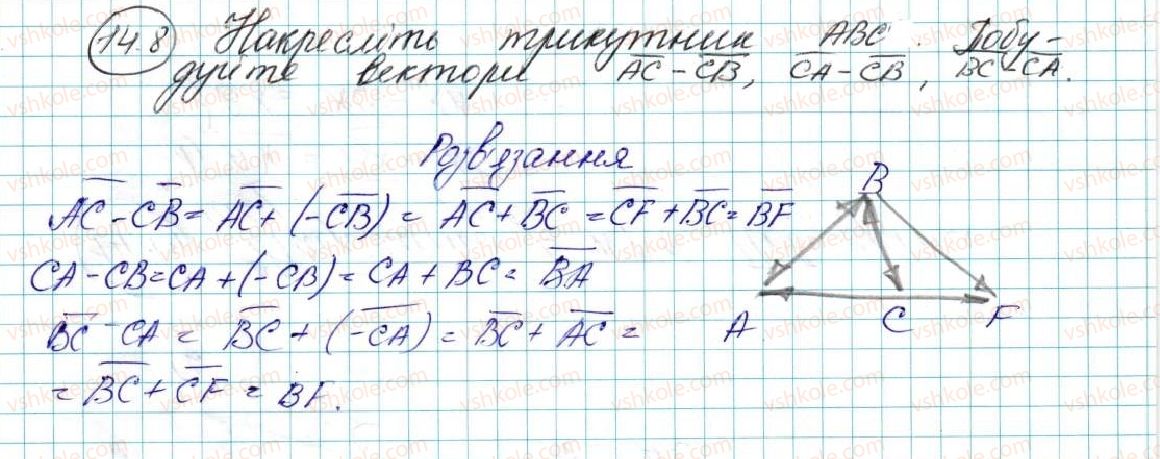 14.8 Накресліть трикутник ABC. Побу-
дуйте вектори \overline{AC} - \overline{CB}, \overline{CA} - \overline{CB}, \overline{BC} - \overline{CA}.
Розв'язання
\overline{AC} - \overline{CB} = \overline{AC} + (-\overline{CB}) = \overline{AC} + \overline{BC} = \overline{CF} + \overline{BC} = \overline{BF}
CA - CB = CA + (-CB) = CA + BC = \overline{BA}
\overline{BC} - CA = \overline{BC} + (\overline{-CA}) = \overline{BC} + \overline{AC} =
= \overline{BC} + \overline{CF} = BF.
B
A C F
vshkole.com